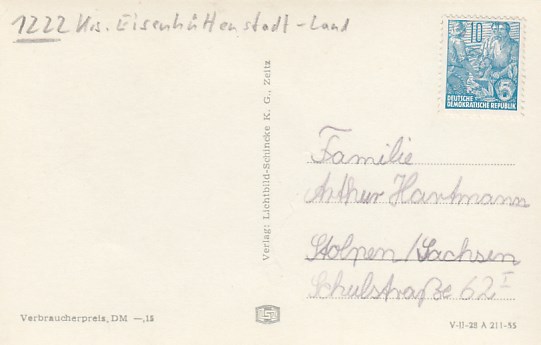 1222 Krs. Eisenhüttenstadt-Land
10
DEUTSCHE
DEMOKRATISCHE REPUBLIK
5
Verlag: Lichtbild-Schincke K. G., Zeitz
Familie
Arthur Hartmann
Stolpen/Sachsen
Schulstraße 62 I
Verbraucherpreis, DM —,15
V-II-28 A 211-55